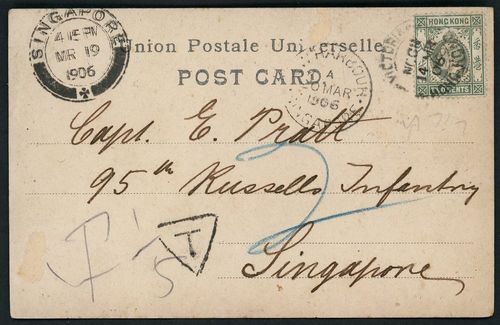 SINGAPORE
4.15 PM
MR 19
1906
Union Postale Universelle.
POST CARD.
HONG KONG
TWO CENTS
VICTORIA
HARBOUR
A
MAR
1906
SINGAPORE
Capt. E. Pratt
95th Russells Infantry
Singapore
2
T
5